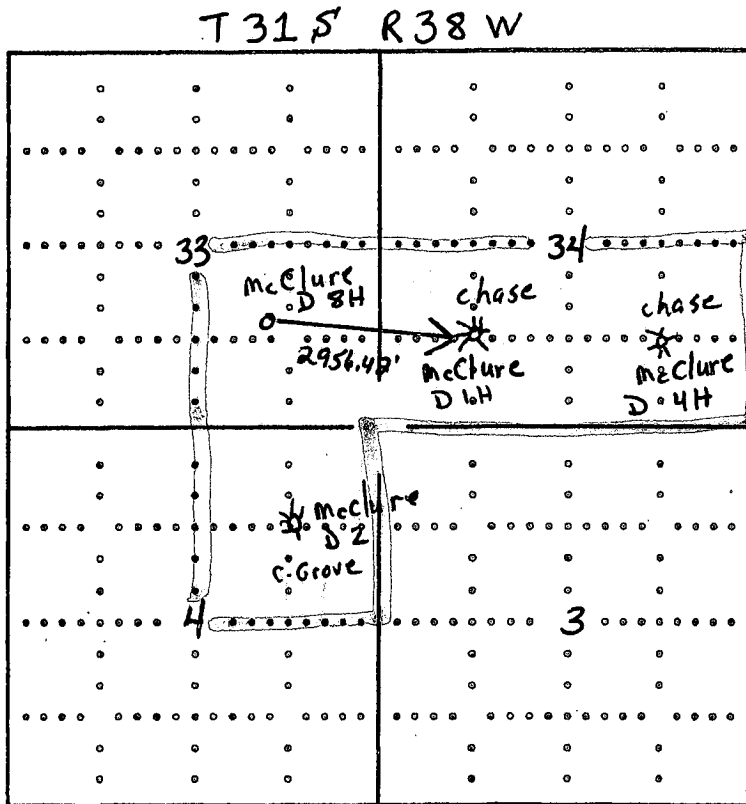 T 31 S R 38 W
33
34
McClure
D 8H
chase
chase
2956.42'
McClure
D 1H
McClure
D 4H
McClure
D 2
C-Grove
4
3